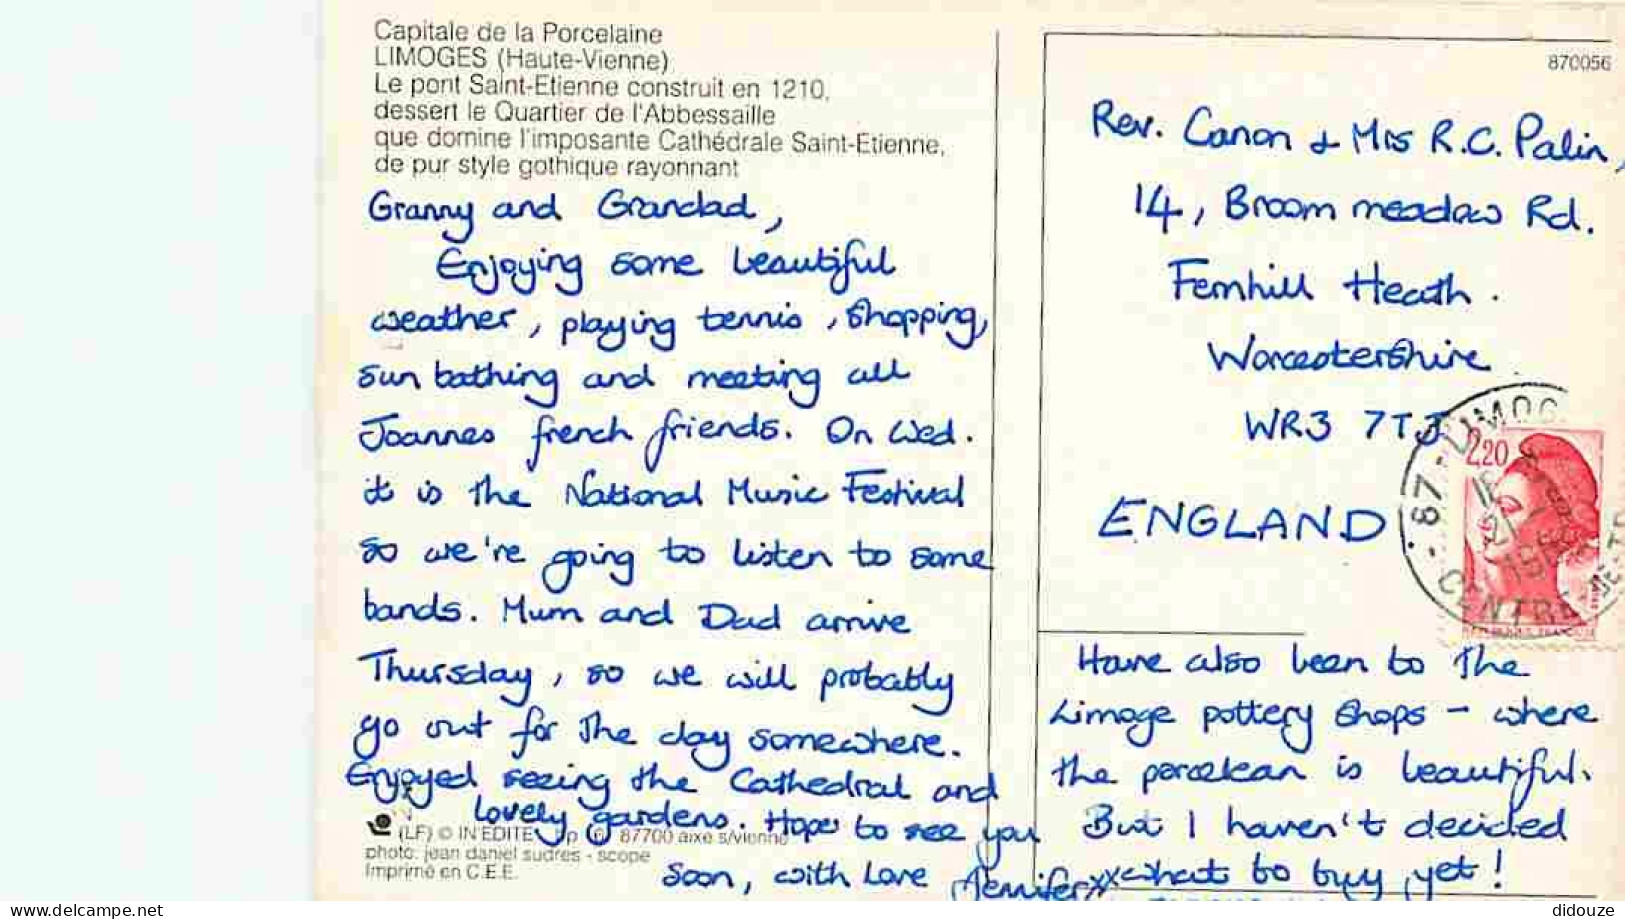 Capitale de la Porcelaine
LIMOGES (Haute-Vienne)
Le pont Saint-Etienne construit en 1210,
dessert le Quartier de l'Abbessaille
que domine l'imposante Cathédrale Saint-Etienne,
de pur style gothique rayonnant
Granny and Grandad,
Enjoying some beautiful
weather, playing tennis, shopping,
sun bathing and meeting all
Joannes french friends. On Wed.
it is the National Music Festival
so we're going to listen to some
bands. Mum and Dad arrive
Thursday, so we will probably
go out for the day somewhere.
Enjoyed seeing the Cathedral and
lovely gardens. Hope to see you
soon, with love Jennifer xx
(LF) © IN'EDITE 87700 aixe s/vienne
photo: jean daniel sudres - scope
Imprimé en C.E.E.
870056
Rev. Canon & Mrs R.C. Palin,
14, Broom meadow Rd.
Fernhill Heath.
Worcestershire
WR3 7TJ
ENGLAND
2,20
87 - LIMOG
CENTRE
Have also been to the
Limoge pottery shops - where
the porcelean is beautiful.
But I haven't decided
what to buy yet!
delcampe.net
didouze